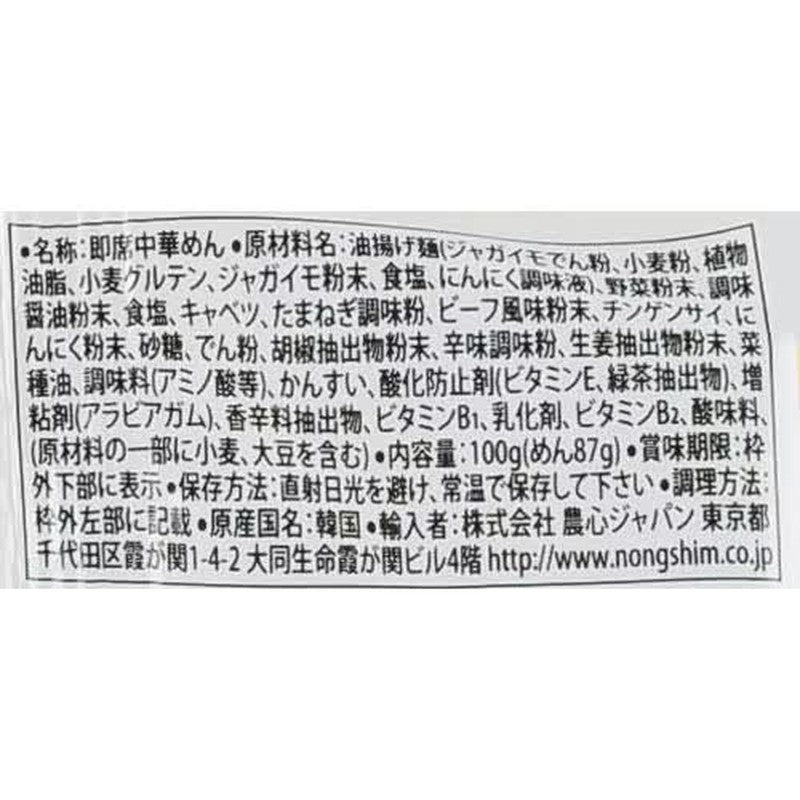 •名称:即席中華めん•原材料名:油揚げ麺(ジャガイモでん粉、小麦粉、植物
油脂、小麦グルテン、ジャガイモ粉末、食塩、にんにく調味液)、野菜粉末、調味
醤油粉末、食塩、キャベツ、たまねぎ調味粉、ビーフ風味粉末、チンゲンサイ、に
んにく粉末、砂糖、でん粉、胡椒抽出物粉末、辛味調味粉、生姜抽出物粉末、菜
種油、調味料(アミノ酸等)、かんすい、酸化防止剤(ビタミンE、緑茶抽出物)、増
粘剤(アラビアガム)、香辛料抽出物、ビタミンB1、乳化剤、ビタミンB2、酸味料、
(原材料の一部に小麦、大豆を含む)•内容量:100g(めん87g)•賞味期限:枠
外下部に表示•保存方法:直射日光を避け、常温で保存して下さい•調理方法:
枠外左部に記載•原産国名:韓国•輸入者:株式会社 農心ジャパン 東京都
千代田区霞が関1-4-2 大同生命霞が関ビル4階 http://www.nongshim.co.jp